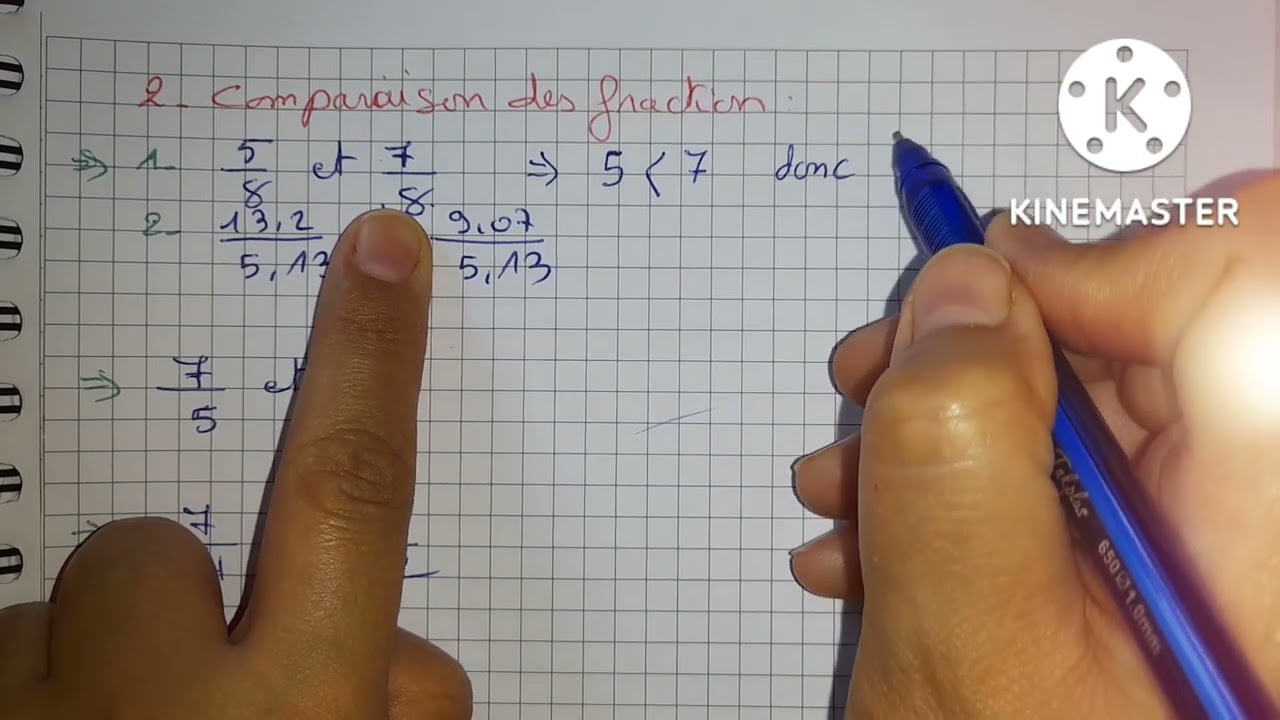 2- Comparaison des fraction :
⇒ 1- 5/8 et 7/8 ⇒ 5 < 7 donc
2- 13,2/5,13 9,07/5,13
⇒ 7/5 et
7
K
KINEMASTER
Tekplas
650 Ø 1.0mm